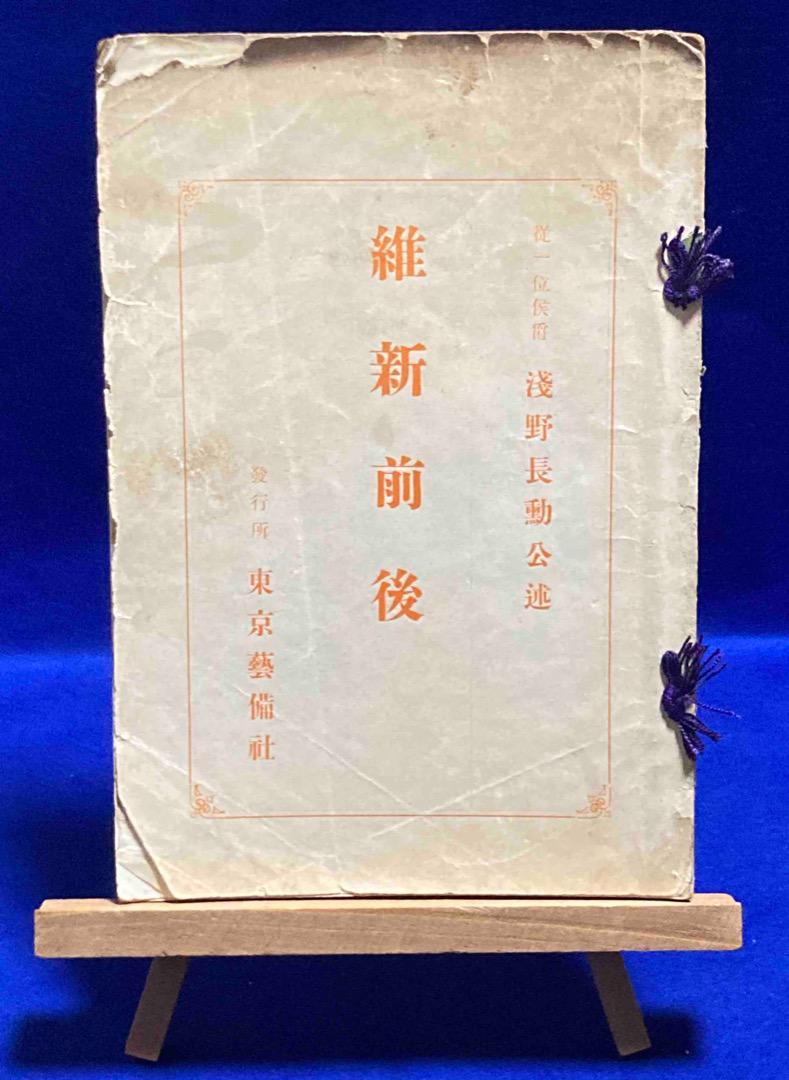 從一位侯爵 淺野長勳公述
維新前後
發行所 東京藝備社